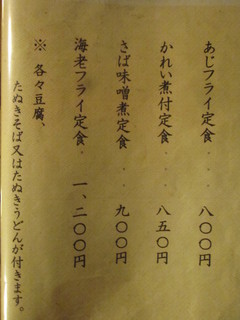 あじフライ定食・・・八〇〇円
かれい煮付定食・・・八五〇円
さば味噌煮定食・・・九〇〇円
海老フライ定食・・・一、二〇〇円
※ 各々豆腐、
たぬきそば又はたぬきうどんが付きます。